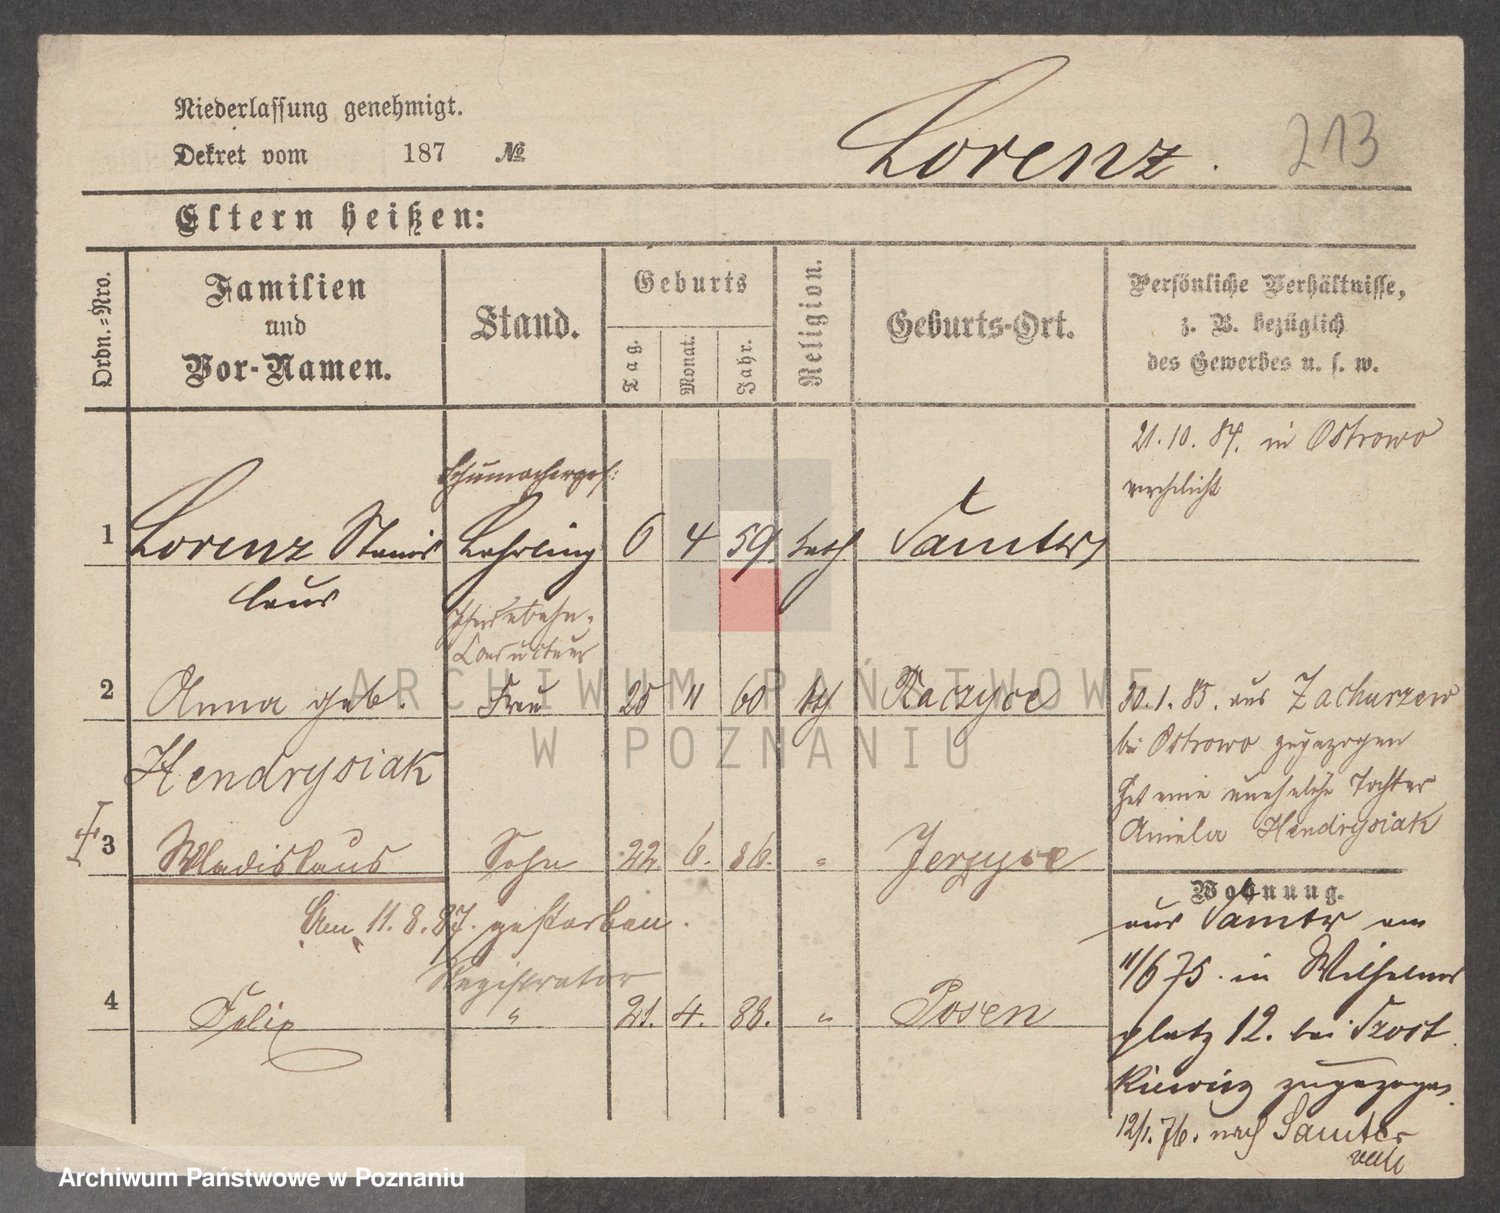 Niederlassung genehmigt.
Dekret vom 187 №
Lorenz.
213
Eltern heißen:
Ordn.-Nro.
Familien
und
Vor-Namen.
Stand.
Geburts
Tag.
Monat.
Jahr.
Religion.
Geburts-Ort.
Persönliche Verhältnisse,
z. B. bezüglich
des Gewerbes u. s. w.
21. 10. 84. in Ostrowo
verehelicht
Schumacherges:
1 Lorenz Stanis Lehrling 6 4 59. kath Samter
laus
Pferdebahn-
Conducteur
2 Anna geb. Frau 25 11 60 kth Raczyce
Hendrysiak
30. 1. 85. aus Zacharzew
bei Ostrowo zugezogen
hat eine uneheliche Tochter
Aniela Hendrysiak
3 Wladislaus Sohn 22 6. 86. " Jerzyce
Am 11. 8. 87. gestorben.
Registrator
4 Felix " 21. 4. 88. " Posen
Wohnung.
aus Samter am
11/6 75. in Wilhelms
platz 12. bei
zugezogen.
12/1. 76. nach Samter
ARCHIWUM PAŃSTWOWE
W POZNANIU
Archiwum Państwowe w Poznaniu